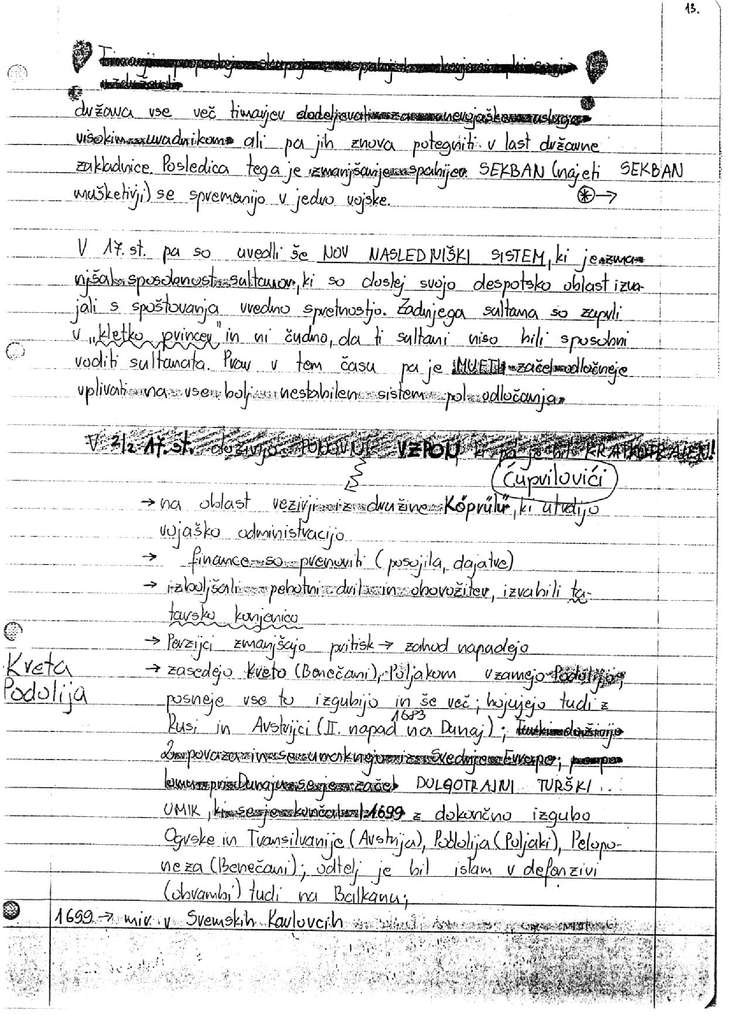 13.
država vse več timarjev dodeljevati za nevojaške usluge
visokim uradnikom ali pa jih znova potegniti v last državne
zakladnice. Posledica tega je izmanjšanje spahijev. SEKBAN (najeti SEKBAN
mušketirji) se spremenijo v jedro vojske. * →
V 17. st. pa so uvedli še NOV NASLEDNIŠKI SISTEM, ki je zma-
njšal sposobnost sultanov, ki so doslej svojo despotsko oblast izva-
jali s spoštovanja vredno spretnostjo. Zadnjega sultana so zaprli
v "kletko princev" in ni čudno, da ti sultani niso bili sposobni
voditi sultanata. Prav v tem času pa je začel odločneje
vplivati na vse bolj nestabilen sistem odločanja.
V 2/2 17. st. doživijo PONOVNI VZPON, ki pa je bil KRATKOTRAJEN!
Ćuprilovići
→ na oblast vezirji iz družine Köprülü, ki utrdijo
vojaško administracijo
→ finance so prenovili (posojila, dajatve)
→ izboljšali pehotni dril in oborožitev, izrabili ta-
tarsko konjenico
→ Perzijci zmanjšajo pritisk → zahod napadejo
Kreta
→ zasedejo Kreto (Benečani), Poljakom vzamejo Podolijo,
Podolija
posneje vse to izgubijo in še več; bojujejo tudi z
Rusi in Avstrijci (II. napad na Dunaj);
1683
DOLGOTRAJNI TURŠKI
UMIK, ki se je končal l. 1699 z dokončno izgubo
Ogrske in Transilvanije (Avstrija), Podolija (Poljaki), Pelopo-
neza (Benečani); odtlej je bil islam v defenzivi
(obrambi) tudi na Balkanu;
1699 → mir v Sremskih Karlovcih